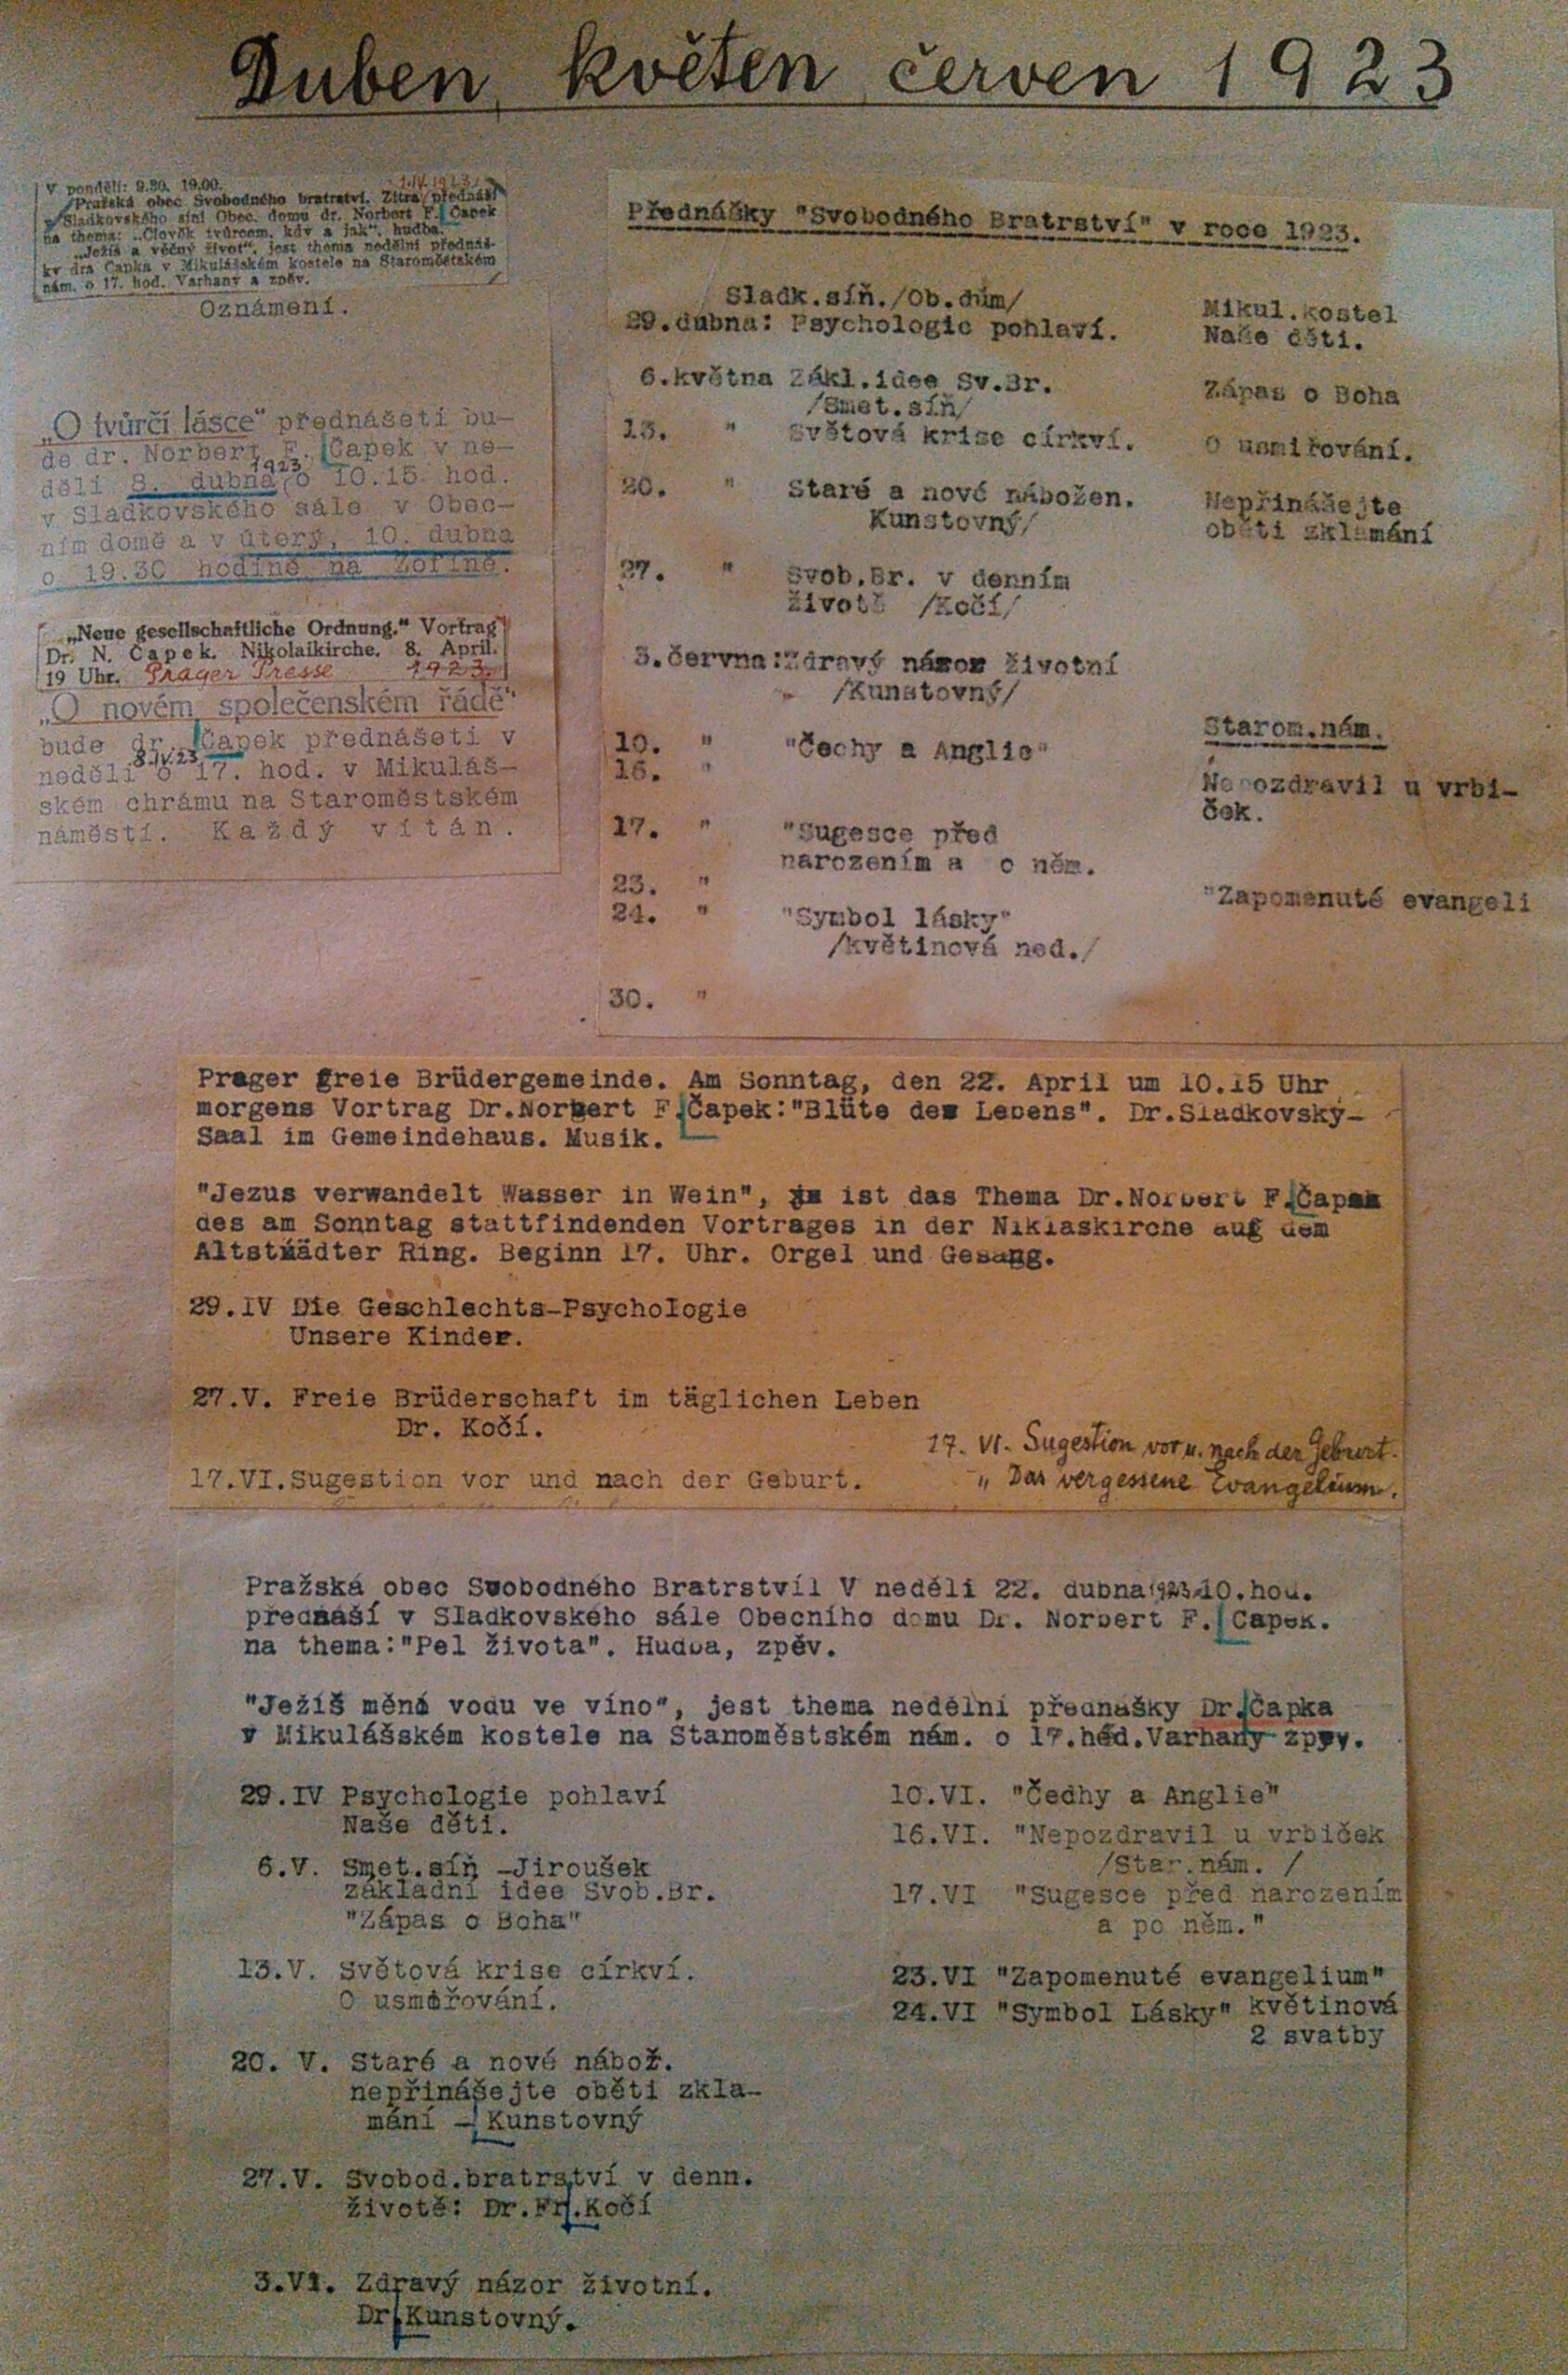 Duben květen červen 1923
V pondělí: 9.30. 19.00. 1.IV.1923
Pražská obec Svobodného bratrství. Zítra přednáší
v Sladkovského síni Obec. domu dr. Norbert F. Čapek
na thema: „Člověk tvůrcem, kdy a jak“, hudba.
„Ježíš a věčný život“, jest thema nedělní přednáš-
ky dra Čapka v Mikulášském kostele na Staroměstském
nám. o 17. hod. Varhany a zpěv.
Oznámení.
„O tvůrčí lásce“ přednášeti bu-
de dr. Norbert F. Čapek v ne-
děli 8. dubna 1923 o 10.15 hod.
v Sladkovského sále v Obec-
ním domě a v úterý, 10. dubna
o 19.30 hodině na Žofíně.
„Neue gesellschaftliche Ordnung.“ Vortrag
Dr. N. Čapek. Nikolaikirche. 8. April.
19 Uhr. Prager Presse 1923.
„O novém společenském řádě“
bude dr. Čapek přednášeti v
neděli 8.IV.23 o 17. hod. v Mikuláš-
ském chrámu na Staroměstském
náměstí. Každý vítán.
Přednášky "Svobodného Bratrství" v roce 1923.
Sladk.síň./Ob.dům/ Mikul.kostel
29.dubna: Psychologie pohlaví. Naše děti.
6.května Zákl.idee Sv.Br. Zápas o Boha
/Smet.síň/
13. " Světová krise církví. O usmiřování.
20. " Staré a nové nábožen. Nepřinášejte
Kunstovný/ oběti zklamání
27. " Svob.Br. v denním
životě /Kočí/
3.června:Zdravý názor životní
/Kunstovný/
Starom.nám.
10. " "Čechy a Anglie"
16. " Nepozdravil u vrbi-
ček.
17. " "Sugesce před
narozením a o něm.
23. " "Zapomenuté evangeli
24. " "Symbol lásky"
/květinová ned./
30. "
Prager freie Brüdergemeinde. Am Sonntag, den 22. April um 10.15 Uhr
morgens Vortrag Dr.Norbert F.Čapek:"Blüte des Lebens". Dr.Sladkovský-
Saal im Gemeindehaus. Musik.
"Jezus verwandelt Wasser in Wein", ist das Thema Dr.Norbert F.Čapek
des am Sonntag stattfindenden Vortrages in der Niklaskirche auf dem
Altstädter Ring. Beginn 17. Uhr. Orgel und Gesang.
29.IV Die Geschlechts-Psychologie
Unsere Kinder.
27.V. Freie Brüderschaft im täglichen Leben
Dr. Kočí.
17. VI. Sugestion vor u. nach der Geburt.
17.VI.Sugestion vor und nach der Geburt.
" Das vergessene Evangelium.
Pražská obec Svobodného Bratrstvíl V neděli 22. dubna 1923 10.hod.
přednáší v Sladkovského sále Obecního domu Dr. Norbert F. Čapek.
na thema:"Pel života". Hudba, zpěv.
"Ježíš měná vodu ve víno", jest thema nedělní přednášky Dr.Čapka
v Mikulášském kostele na Stanoměstském nám. o 17.héd.Varhany zpyv.
29.IV Psychologie pohlaví
Naše děti.
6.V. Smet.síň -Jiroušek
základní idee Svob.Br.
"Zápas o Boha"
13.V. Světová krise církví.
O usmiřování.
20. V. Staré a nové nábož.
nepřinášejte oběti zkla-
mání - Kunstovný
27.V. Svobod.bratrství v denn.
životě: Dr.Fr.Kočí
3.VI. Zdravý názor životní.
Dr Kunstovný.
10.VI. "Čedhy a Anglie"
16.VI. "Nepozdravil u vrbiček
/Star.nám. /
17.VI "Sugesce před narozením
a po něm."
23.VI "Zapomenuté evangelium"
24.VI "Symbol Lásky" květinová
2 svatby